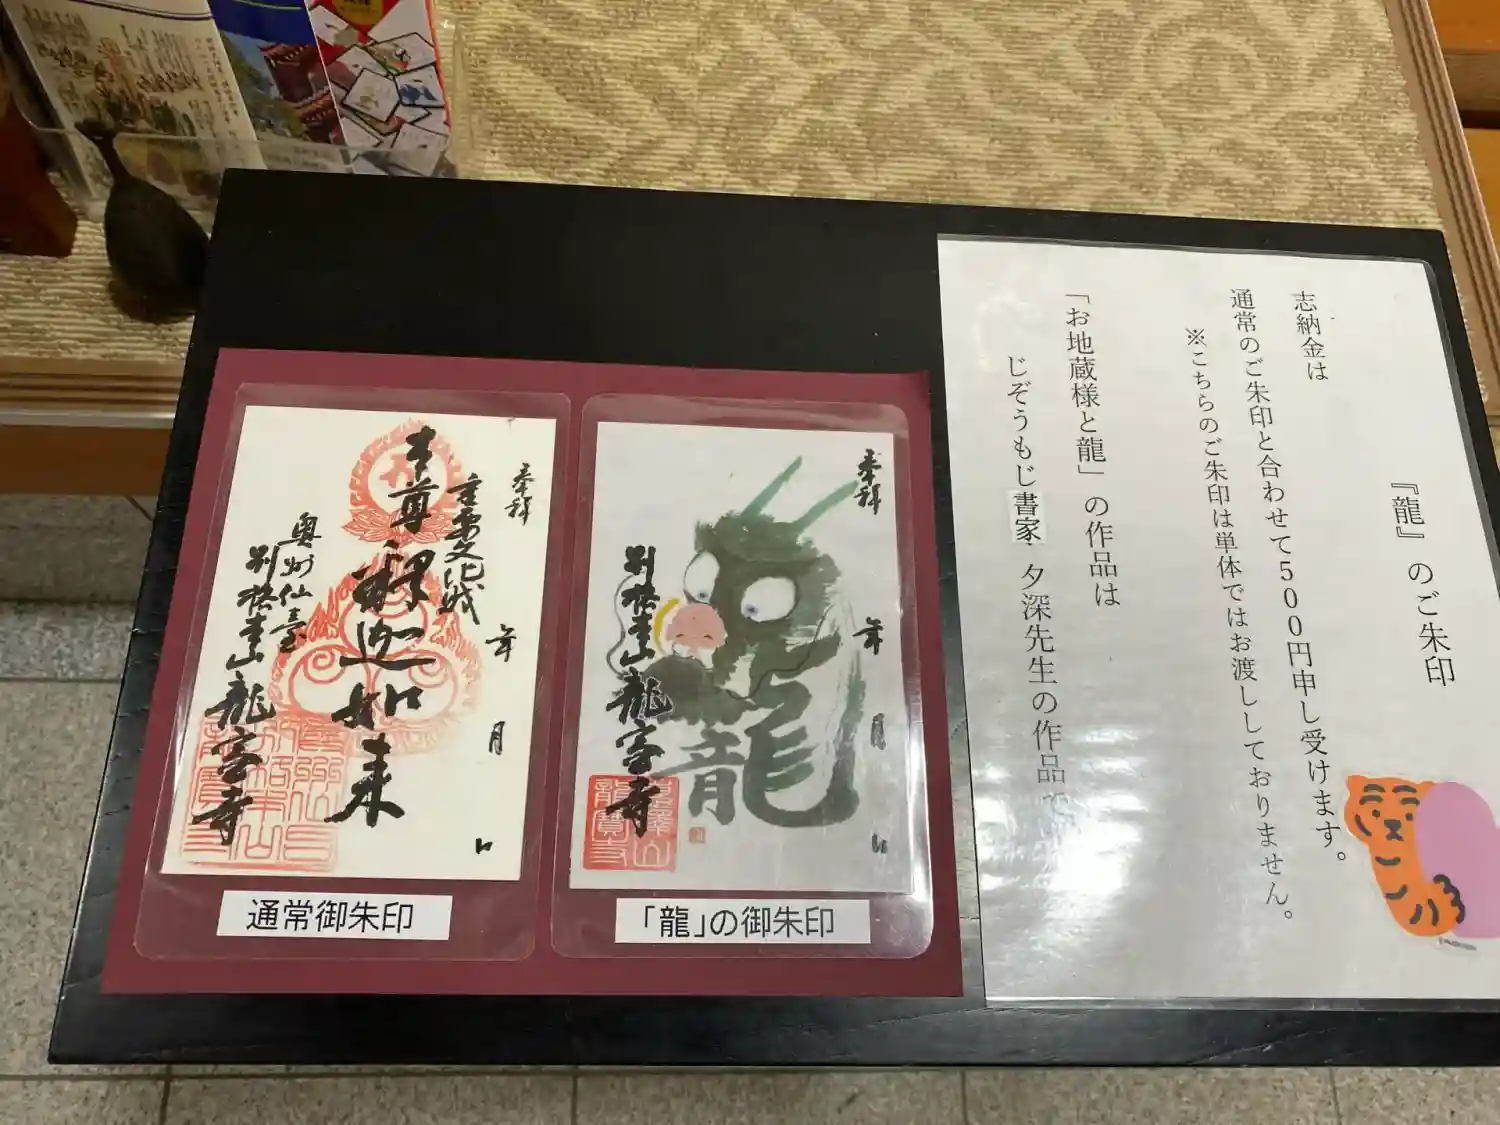 『龍』のご朱印
志納金は
通常のご朱印と合わせて500円申し受けます。
※こちらのご朱印は単体ではお渡ししておりません。
「お地蔵様と龍」の作品は
じぞうもじ書家 夕深先生の作品で
奉拝
重要文化財
本尊 釋迦如来
年 月 日
奥州仙臺
別格本山 龍寳寺
通常御朱印
奉拝
年 月 日
龍
別格本山 龍寳寺
「龍」の御朱印